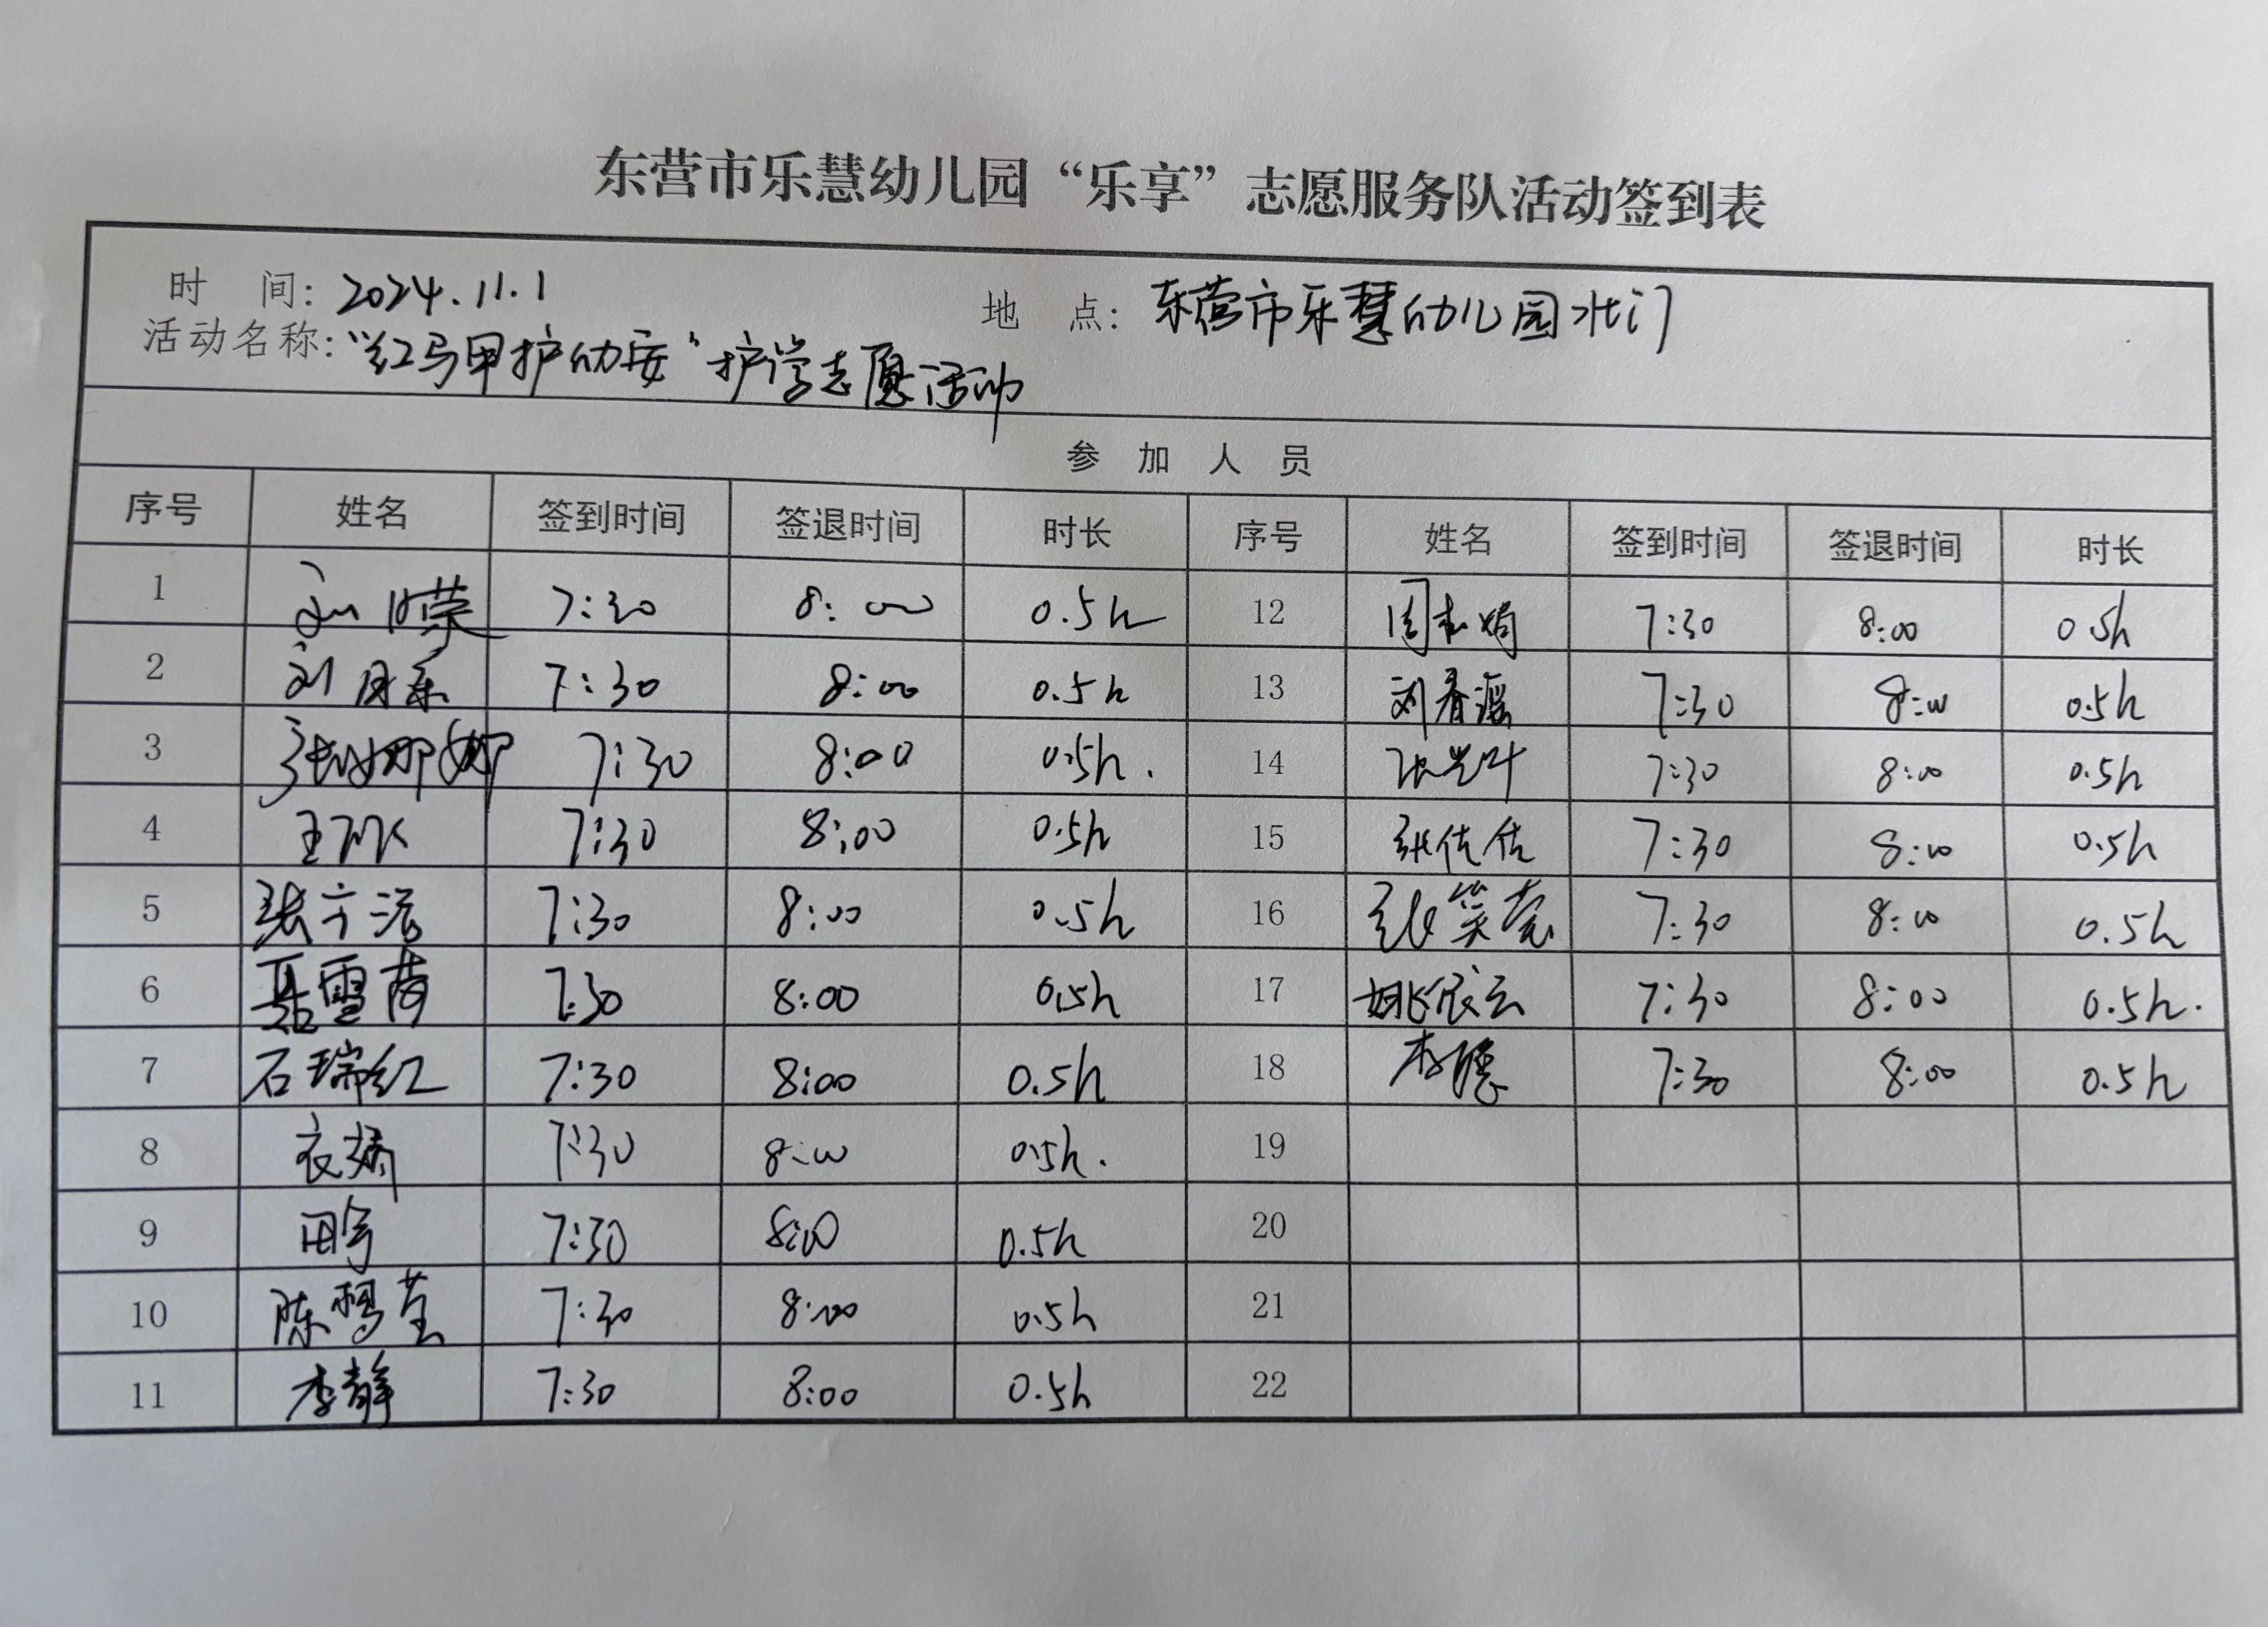 东营市乐慧幼儿园“乐享”志愿服务队活动签到表
时 间: 2024.11.1 地 点: 东营市乐慧幼儿园北门
活动名称: “红马甲护幼安”护学志愿活动
参 加 人 员
序号 姓名 签到时间 签退时间 时长 序号 姓名 签到时间 签退时间 时长
1 7:30 8:00 0.5h 12 7:30 8:00 0.5h
2 7:30 8:00 0.5h 13 刘春瑶 7:30 8:00 0.5h
3 张娜娜 7:30 8:00 0.5h. 14 7:30 8:00 0.5h
4 7:30 8:00 0.5h 15 张佐佐 7:30 8:00 0.5h
5 7:30 8:00 0.5h 16 张笑莹 7:30 8:00 0.5h
6 聂雪茜 7:30 8:00 0.5h 17 姚依云 7:30 8:00 0.5h.
7 石瑞红 7:30 8:00 0.5h 18 李 7:30 8:00 0.5h
8 衣娇 7:30 8:00 0.5h. 19
9 田宁 7:30 8:00 0.5h 20
10 陈 7:30 8:00 0.5h 21
11 李静 7:30 8:00 0.5h 22